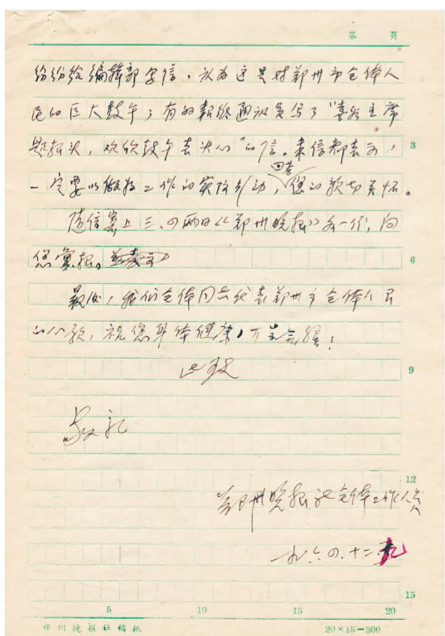 第 頁
纷纷给编辑部写信，认为这是对郑州市全体人
民的巨大鼓午；有的郊区通讯员写了“喜看主席
题报头，欢欣鼓午表决心”的信。来信都表示，
3
一定要以做好工作的实际行动，回答您的殷切关怀。
随信寄上三、四两日《郑州晚报》各一份，向
您汇报。
6
最后，我们全体同志代表郑州市全体人民
的心愿，祝您身体健康，万寿无疆！
此致
9
敬礼
12
郑州晚报社全体工作人员
一九六四.十二.
15
5 10 15 20
郑州晚报社稿纸 20×15=300